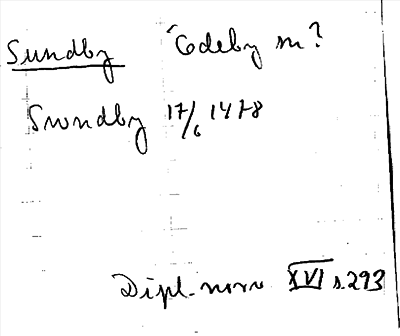 Sundby Edeby sn?
Swndby 17/6 1478
Dipl. norv XVI s. 293